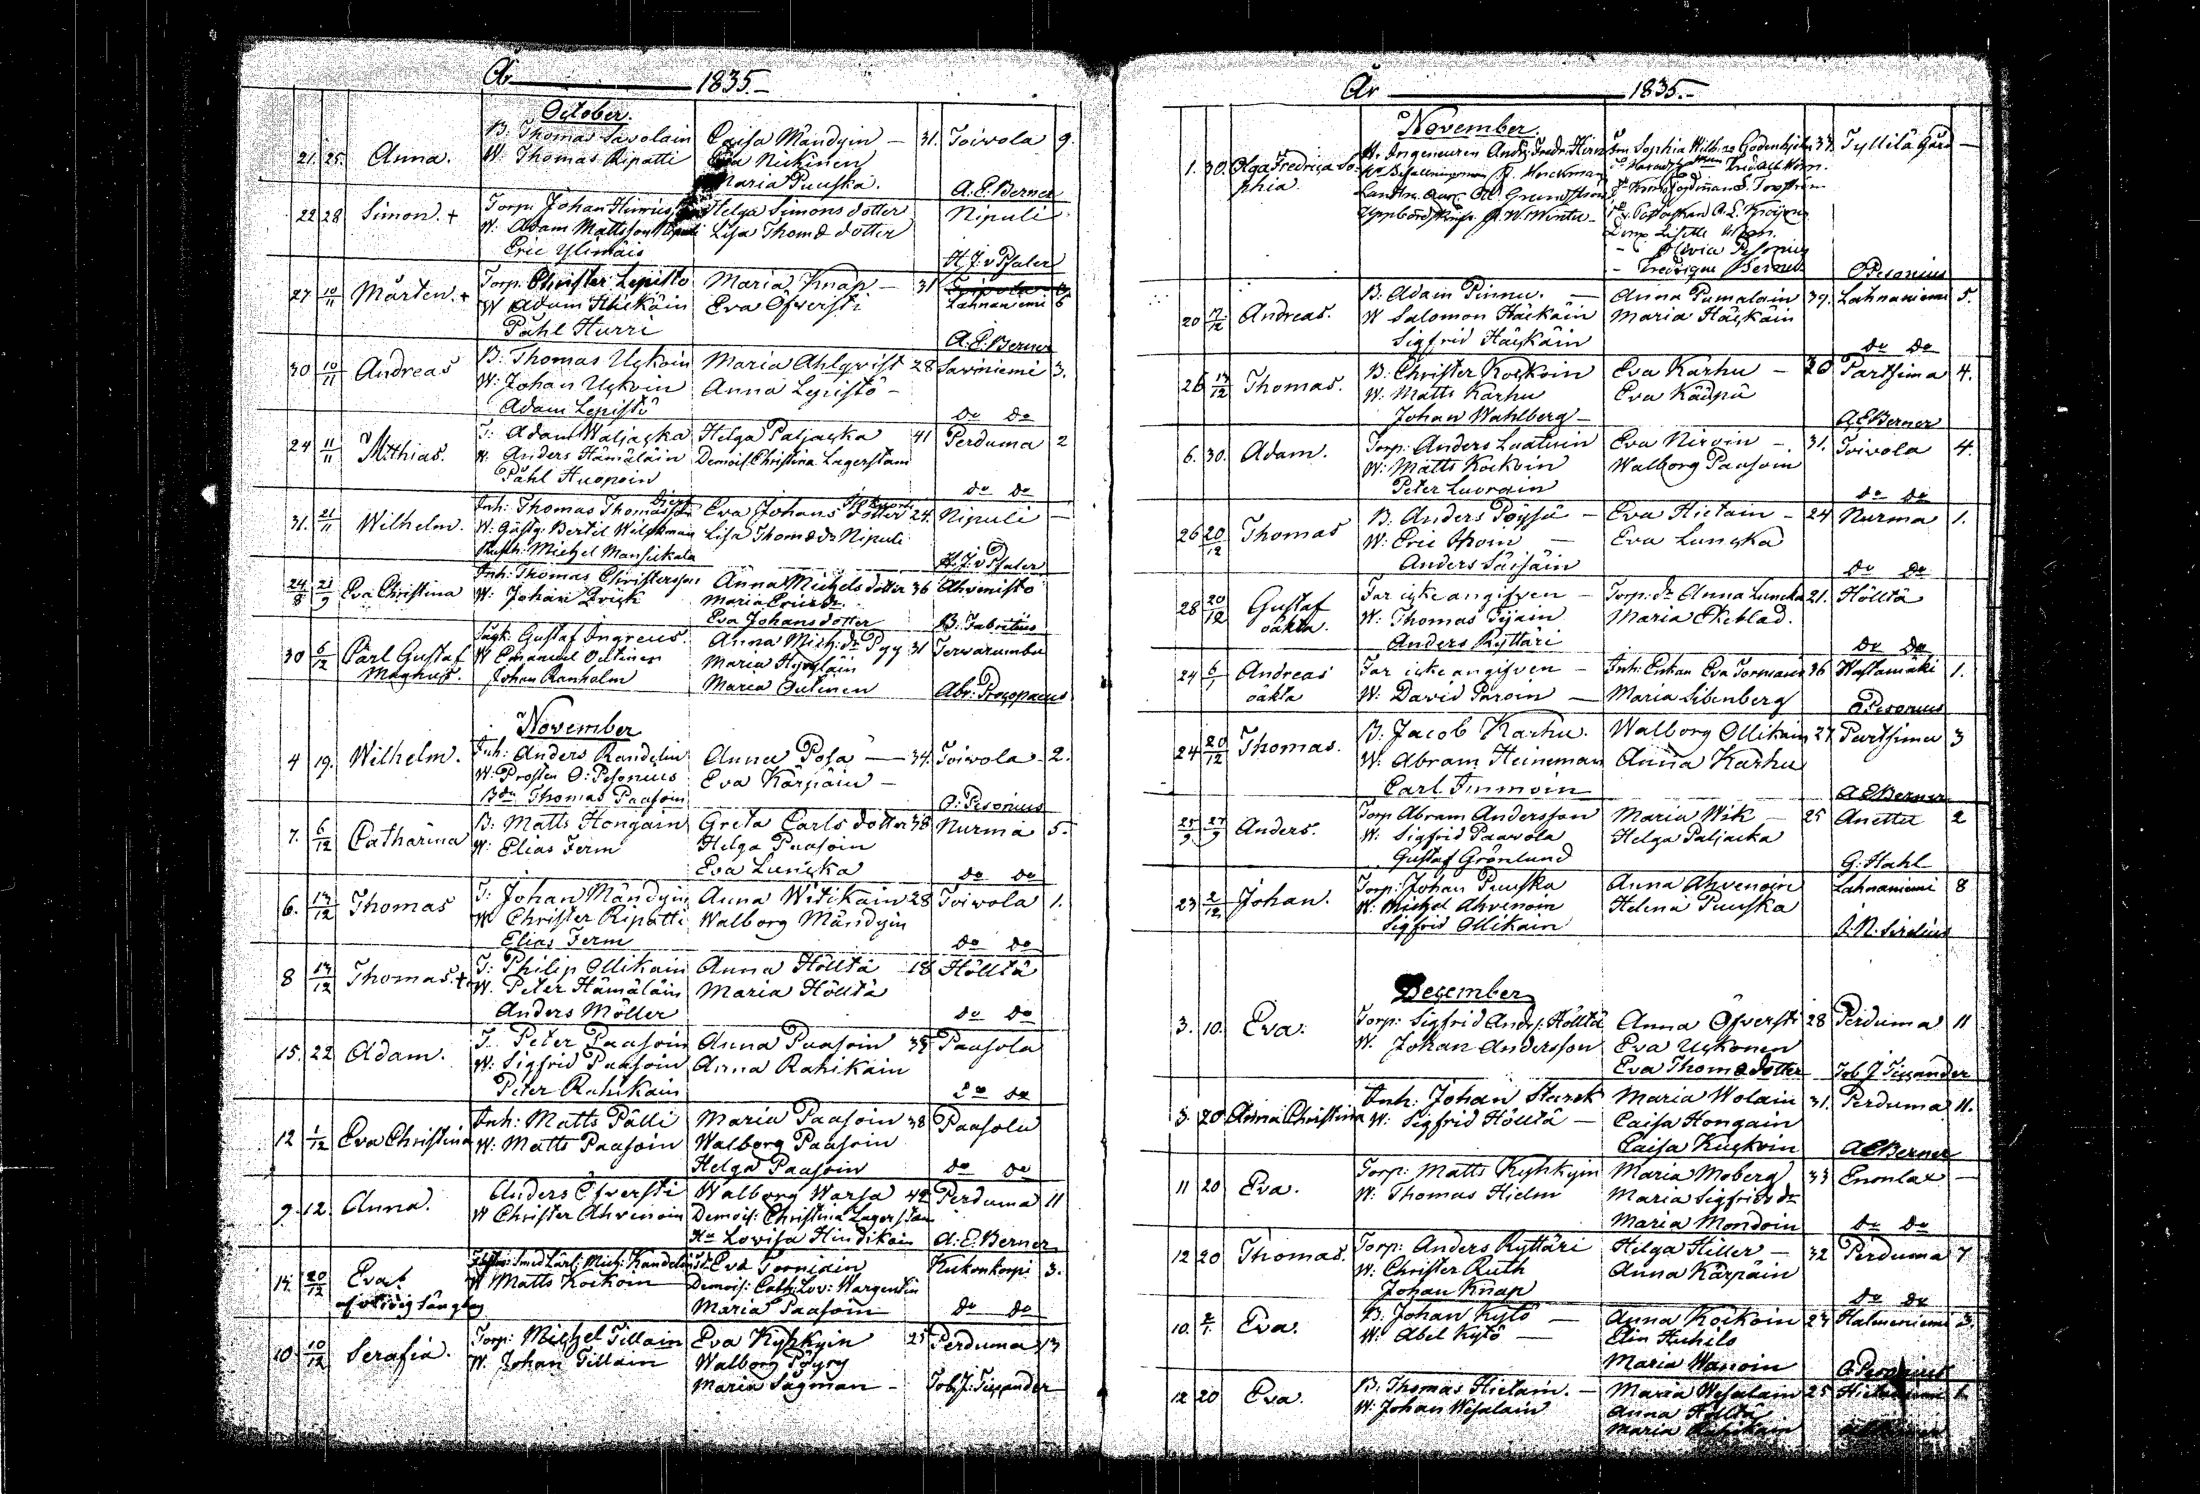 År 1835.
October.
21. 25. Anna. B: Thomas Savolain Caisa Mändyin 31. Toivola 9.
W. Thomas Ripatti Eva Nickinen
Maria Puuska. A. E. Berner
22 28 Simon. + Torp. Johan Helga Simons dotter Nipuli
W. Adam Mattsson Lisa Thomæ dotter
Eric Ylimäis H. J. v Psaler
27 10/11 Mårten. + Torp. Christer Lepistö Maria Knap 31
W Adam Häikäin Eva Öfversti Lahnaniemi 6
Påhl Hurri A. E. Berner
30 10/11 Andreas B. Thomas Uckoin Maria Ahlqvist 28 Saviniemi 3.
W: Johan Uckoin Anna Lepistö
Adam Lepistö do do
24 11/11 Mathias. T: Adam Waljacka Helga Paljacka 41 Perduma 2
W. Anders Hämäläin Demois. Christina Lagerstam
Påhl Huopoin do do
31. 21/11 Wilhelm. Inh: Thomas Thomasson Eva Johans dotter 24. Nipuli
W. Gästg: Bertil Wilckman Lisa Thomæ dr Nipuli
Michel Mansickala H. J. v Psaler
24/8 21/9 Eva Christina Inh: Thomas Christersson Anna Michels dotter 36 Ahvenisto
W. Johan Maria Erics dr
Eva Johans dotter B. Fabritius
30 6/12 Carl Gustaf Magnus. Gustaf Ingreus Anna Mich: dr Pyy 31 Terwarumbu
W Emanuel Outinen Maria Hyvöläin
Johan Ranholm Maria Outinen Abr: Procopaeus
November
4 19. Wilhelm. Inh: Anders Randelin Anna Posa 34. Toivola 2.
W: Prosten O: Pesonius Eva Kärpäin
Bdn Thomas Paasoin O: Pesonius
7. 6/12 Catharina B: Matts Hongain Greta Carls dotter 38 Nurmä 5.
W: Elias Ferm Helga Paasoin
Eva Luncka do do
6. 13/12 Thomas T: Johan Mändyin Anna Witikain 28 Toivola 1.
W Christer Ripatti Walborg Mändyin
Elias Ferm do do
8 13/12 Thomas. + T: Philip Ollikain Anna Hölltä 18 Hölltä
W. Peter Hämäläin Maria Hölltä
Anders Möller do do
15. 22 Adam. T. Peter Paasoin Anna Paasoin 35 Paasola
W: Sigfrid Paasoin Anna Rahikain
Peter Rahikain do do
12 1/12 Eva Christina Inh: Matts Pälli Maria Paasoin 38 Paasola
W: Matts Paasoin Walborg Paasoin
Helga Paasoin do do
9. 12. Anna. Anders Öfversti Walborg Warsa 42 Perduma 11
W Christer Ahvenoin Demois: Christina Lagerstam
Lowisa Hindikain A: E. Berner
14. 20/12 Eva. Mich: Randelin Eva Torniain Kukonkorpi 3.
W Matts Kockoin Demois: Cath: Lov: Wargentin
Maria Paasoin do do
10 10/12 Serafia. Torp: Michel Tillain Eva Kyhkyin 25 Perduma 13
W. Johan Tillain Walborg Pöyry
Maria Sagman Tob. J: Tissander
År 1835.
November.
1. 30. Olga Fredrica Sophia H. Ingeneuren Fru Sophia Wilh: na Godenhjelm 37. Tyllilä Gård
J. W. Winter
Lisette
Olivia Pesonius
Fredrique Berner O Pesonius
20 17/12 Andreas. B. Adam Pinnu. Anna Pumalain 39. Lahnaniemi 5.
W Salomon Häikäin Maria Häikäin
Sigfrid Häikäin do do
26 13/12 Thomas. B. Christer Kockoin Eva Karhu 20 Partsima 4.
W. Matts Karhu Eva Kääpä
Johan Wahlberg A E Berner
6. 30. Adam. Torp: Anders Laatuin Eva Nirvin 31. Toivola 4.
W. Matts Kockoin Walborg Paasoin
Peter Luorain do do
26 20/12 Thomas B: Anders Pöysä Eva Hietain 24 Nurma 1.
W: Eric Thom Eva Luncka
Anders Säisäin do do
28 20/12 Gustaf oäkta. Far icke angifven Torp: dr Anna Luncka 21. Hölltä
W: Thomas Tijain Maria Ekeblad.
Anders Ryttäri do do
24 6/1 Andreas oäkta Far icke angifven Inh: Enkan Eva Tormain 36 Hastamäki 1.
W. David Paroin Maria Silenberg O Pesonius
24 20/12 Thomas. B. Jacob Karhu. Walborg Ollikain 27 Partsima 3
W. Abram Heineman Anna Karhu
Carl Immoin A E Berner
25/9 27/9 Anders. Torp Abram Andersson Maria Wik 25 Anettu 2
W. Sigfrid Paavola Helga Paljacka
Gustaf Grönlund G: Stahl
23 2/12 Johan. Torp: Johan Puuska Anna Ahvenoin Lahnaniemi 8
W. Michel Ahvenoin Helena Puuska
Sigfrid Ollikain J. N. Sirelius
December
3. 10. Eva. Torp: Sigfrid And: Hölltä Anna Öfversti 28 Perduma 11
W. Johan Andersson Eva Uckonen
Eva Thomædotter Tob J Tissander
3. 20 Anna Christina Inh: Johan Starck Maria Wolain 31. Perduma 11.
W. Sigfrid Hölltä Caisa Hongain
Caisa Kuckoin A E Berner
11 20 Eva. Torp: Matts Kyhkyin Maria Moberg 33 Enonlax
W. Thomas Hielm Maria Sigfrids dr
Maria Mondoin do do
12 20 Thomas. Torp: Anders Ryttäri Helga Hiller 32 Perduma 7
W. Christer Ruth Anna Kärpäin
Johan Knap do do
10. 2/1. Eva. B. Johan Kytö Anna Kockoin 23 Halmeniemi 3.
W. Abel Kytö Elin Kuhilo
Maria Wanoin O Pesonius
12 20 Eva. B. Thomas Hietain. Maria Wesalain 25
W. Johan Wesalain Anna Hölltä
Maria